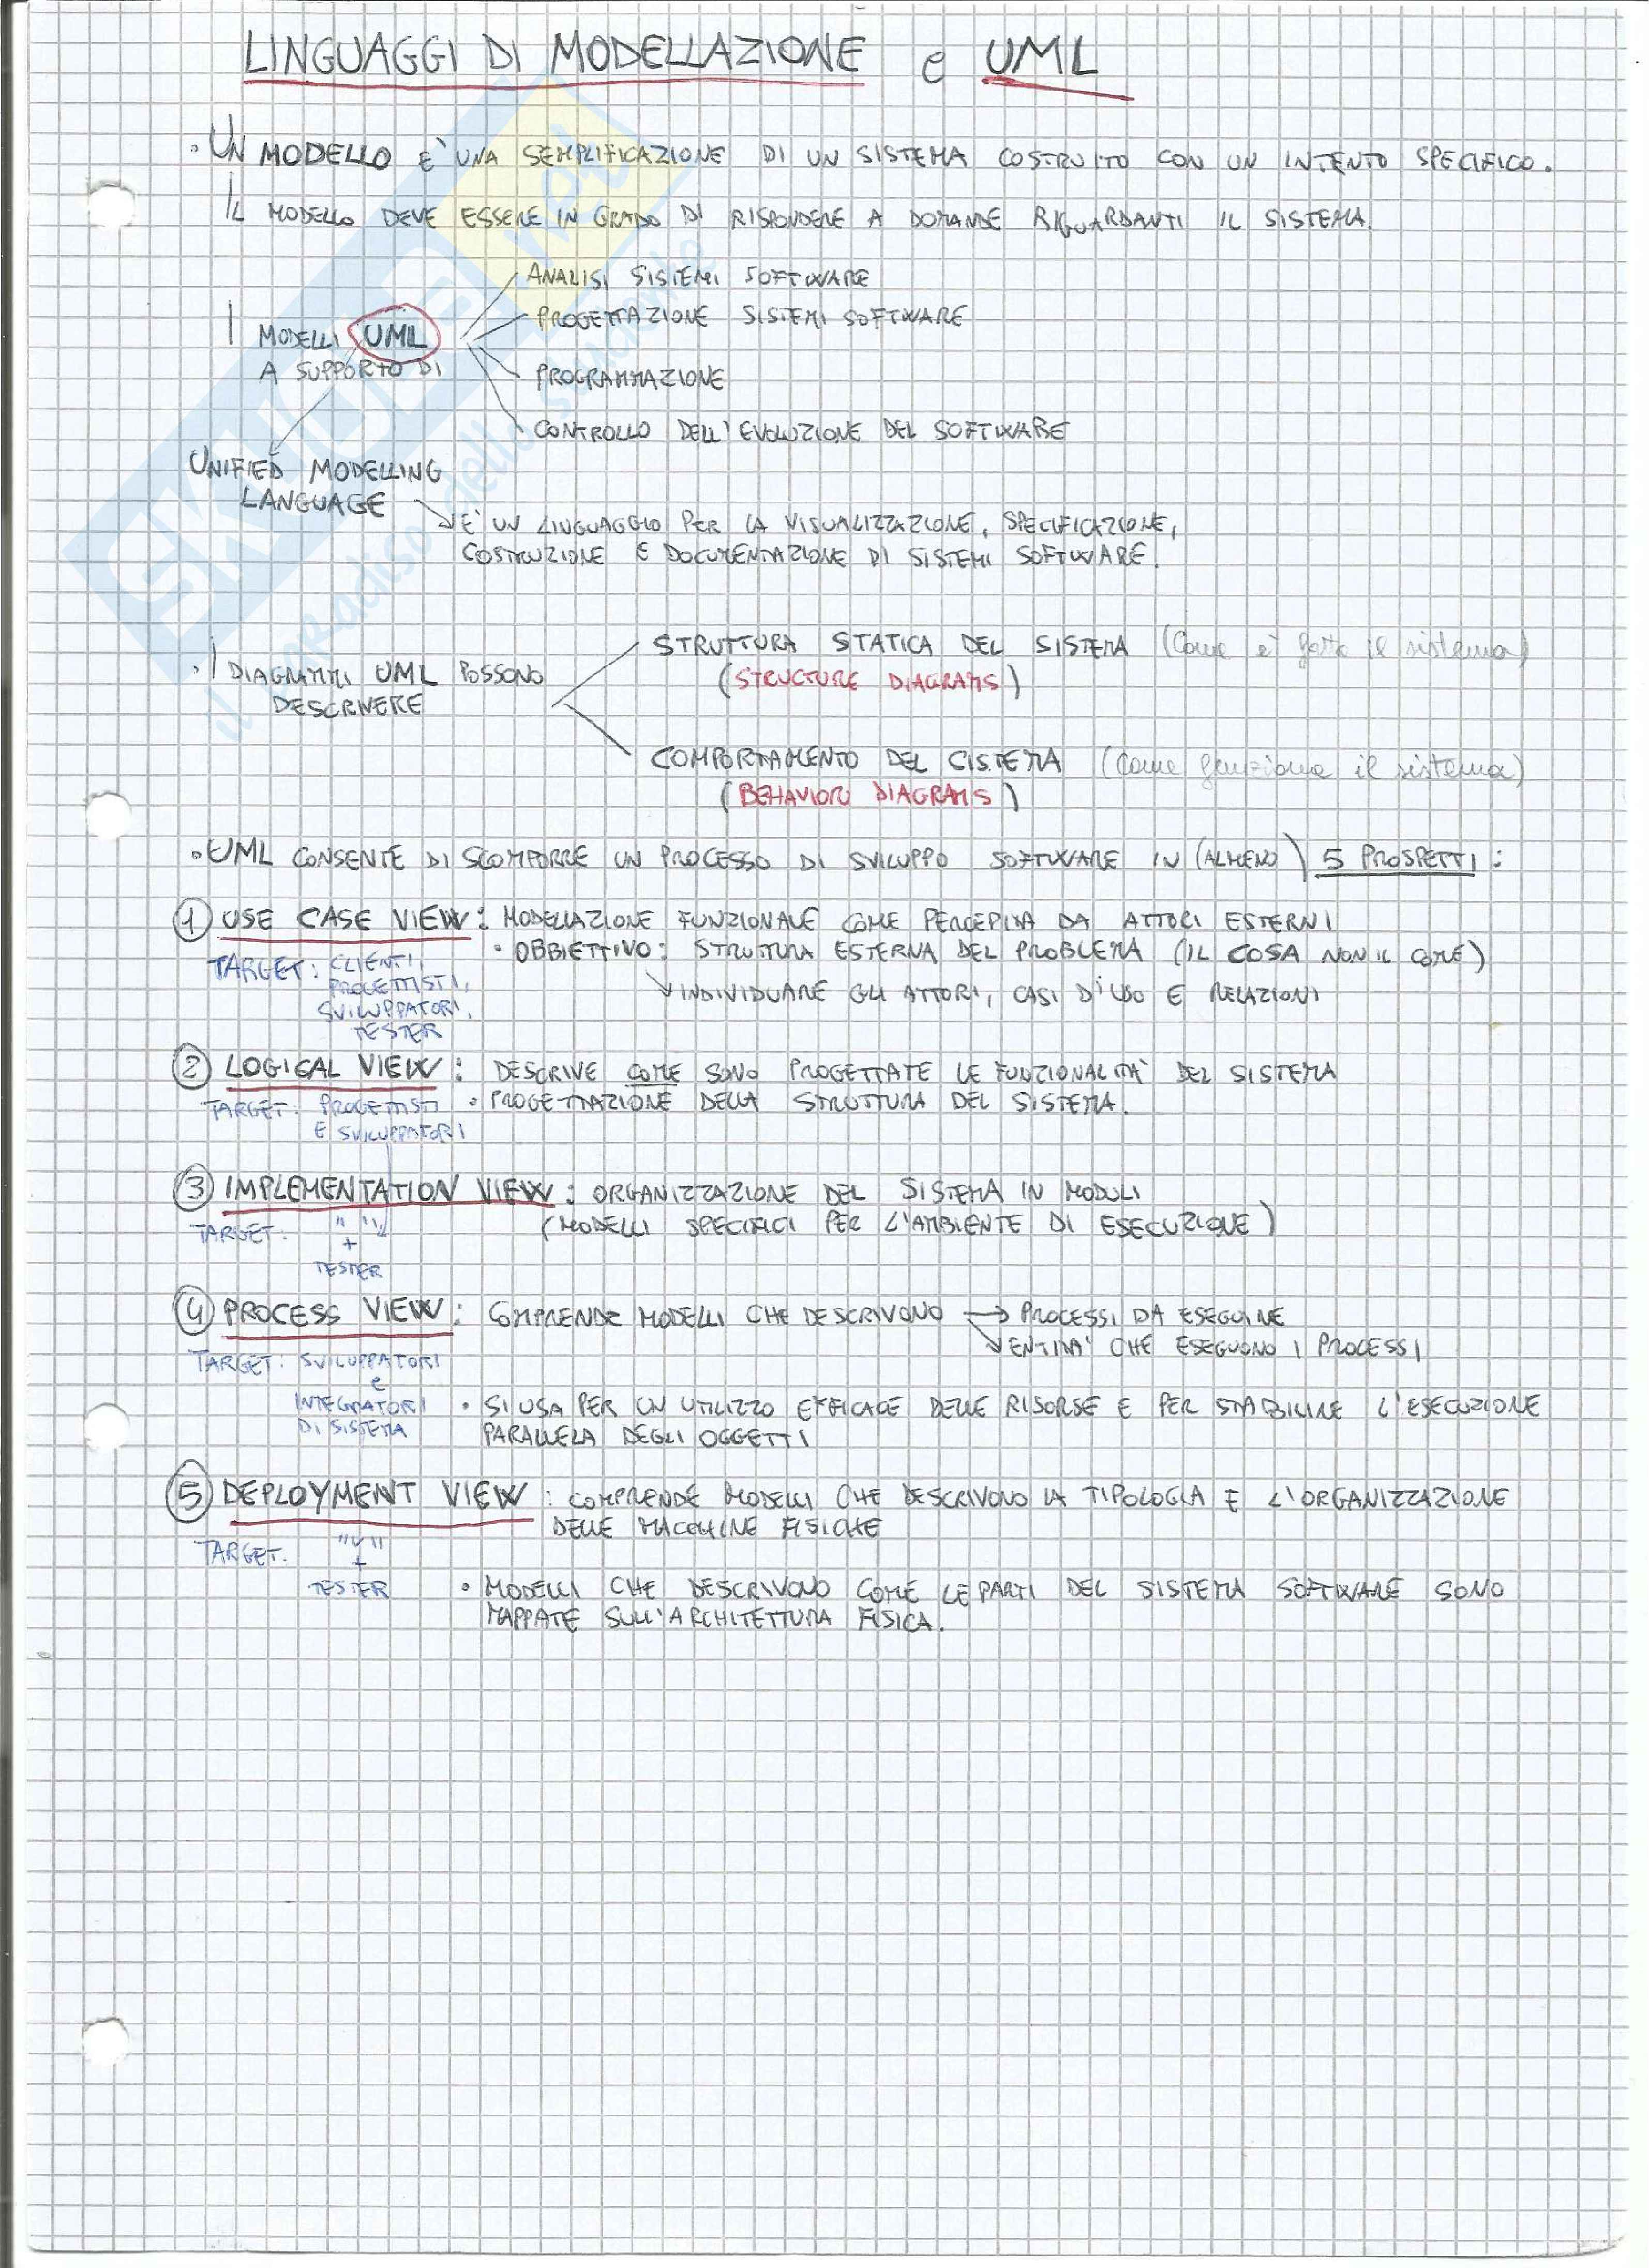 LINGUAGGI DI MODELLAZIONE e UML
• UN MODELLO E' UNA SEMPLIFICAZIONE DI UN SISTEMA COSTRUITO CON UN INTENTO SPECIFICO.
IL MODELLO DEVE ESSERE IN GRADO DI RISPONDERE A DOMANDE RIGUARDANTI IL SISTEMA.
ANALISI SISTEMI SOFTWARE
PROGETTAZIONE SISTEMI SOFTWARE
I MODELLI UML
A SUPPORTO DI
PROGRAMMAZIONE
CONTROLLO DELL'EVOLUZIONE DEL SOFTWARE
UNIFIED MODELLING
LANGUAGE
E' UN LINGUAGGIO PER LA VISUALIZZAZIONE, SPECIFICAZIONE,
COSTRUZIONE E DOCUMENTAZIONE DI SISTEMI SOFTWARE.
STRUTTURA STATICA DEL SISTEMA (Come è fatto il sistema)
(STRUCTURE DIAGRAMS)
• I DIAGRAMMI UML POSSONO
DESCRIVERE
COMPORTAMENTO DEL SISTEMA (Come funziona il sistema)
(BEHAVIOR DIAGRAMS)
• UML CONSENTE DI SCOMPORRE UN PROCESSO DI SVILUPPO SOFTWARE IN (ALMENO) 5 PROSPETTI:
1 USE CASE VIEW: MODELLAZIONE FUNZIONALE COME PERCEPITA DA ATTORI ESTERNI
• OBBIETTIVO: STRUTTURA ESTERNA DEL PROBLEMA (IL COSA NON IL COME)
INDIVIDUARE GLI ATTORI, CASI D'USO E RELAZIONI
TARGET: CLIENTI,
PROGETTISTI,
SVILUPPATORI,
TESTER
2 LOGICAL VIEW: DESCRIVE COME SONO PROGETTATE LE FUNZIONALITA' DEL SISTEMA
• PROGETTAZIONE DELLA STRUTTURA DEL SISTEMA.
TARGET: PROGETTISTI
E SVILUPPATORI
3 IMPLEMENTATION VIEW: ORGANIZZAZIONE DEL SISTEMA IN MODULI
(MODELLI SPECIFICI PER L'AMBIENTE DI ESECUZIONE)
TARGET: " "
+
TESTER
4 PROCESS VIEW: COMPRENDE MODELLI CHE DESCRIVONO → PROCESSI DA ESEGUIRE
ENTITA' CHE ESEGUONO I PROCESSI
TARGET: SVILUPPATORI
e
INTEGRATORI
DI SISTEMA
• SI USA PER UN UTILIZZO EFFICACE DELLE RISORSE E PER STABILIRE L'ESECUZIONE
PARALLELA DEGLI OGGETTI
5 DEPLOYMENT VIEW: COMPRENDE MODELLI CHE DESCRIVONO LA TIPOLOGIA E L'ORGANIZZAZIONE
DELLE MACCHINE FISICHE
TARGET: " "
+
TESTER
• MODELLI CHE DESCRIVONO COME LE PARTI DEL SISTEMA SOFTWARE SONO
MAPPATE SULL'ARCHITETTURA FISICA.
SKUOLA.net
il paradiso dello studente